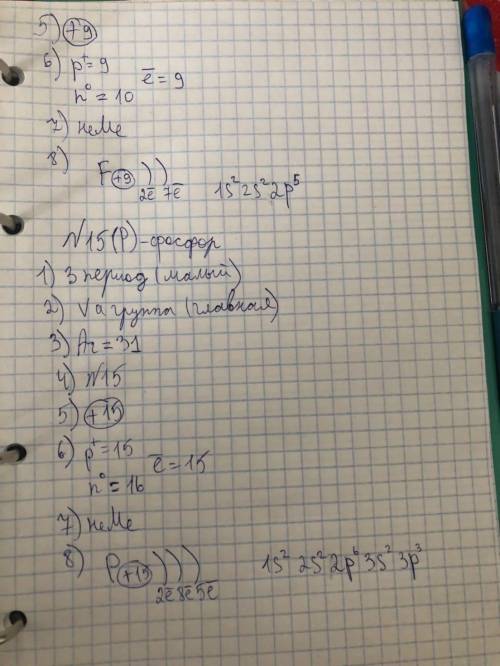 5) +9
6) p⁺ = 9 ē = 9
n⁰ = 10
7) неМе
8) F +9 ) )
2ē 7ē 1s² 2s² 2p⁵
N15(P) - фосфор
1) 3 период (малый)
2) V а группа (главная)
3) Ar = 31
4) N15
5) +15
6) p⁺ = 15 ē = 15
n⁰ = 16
7) неМе
8) P +15 ) ) ) 1s² 2s² 2p⁶ 3s² 3p³
2ē 8ē 5ē